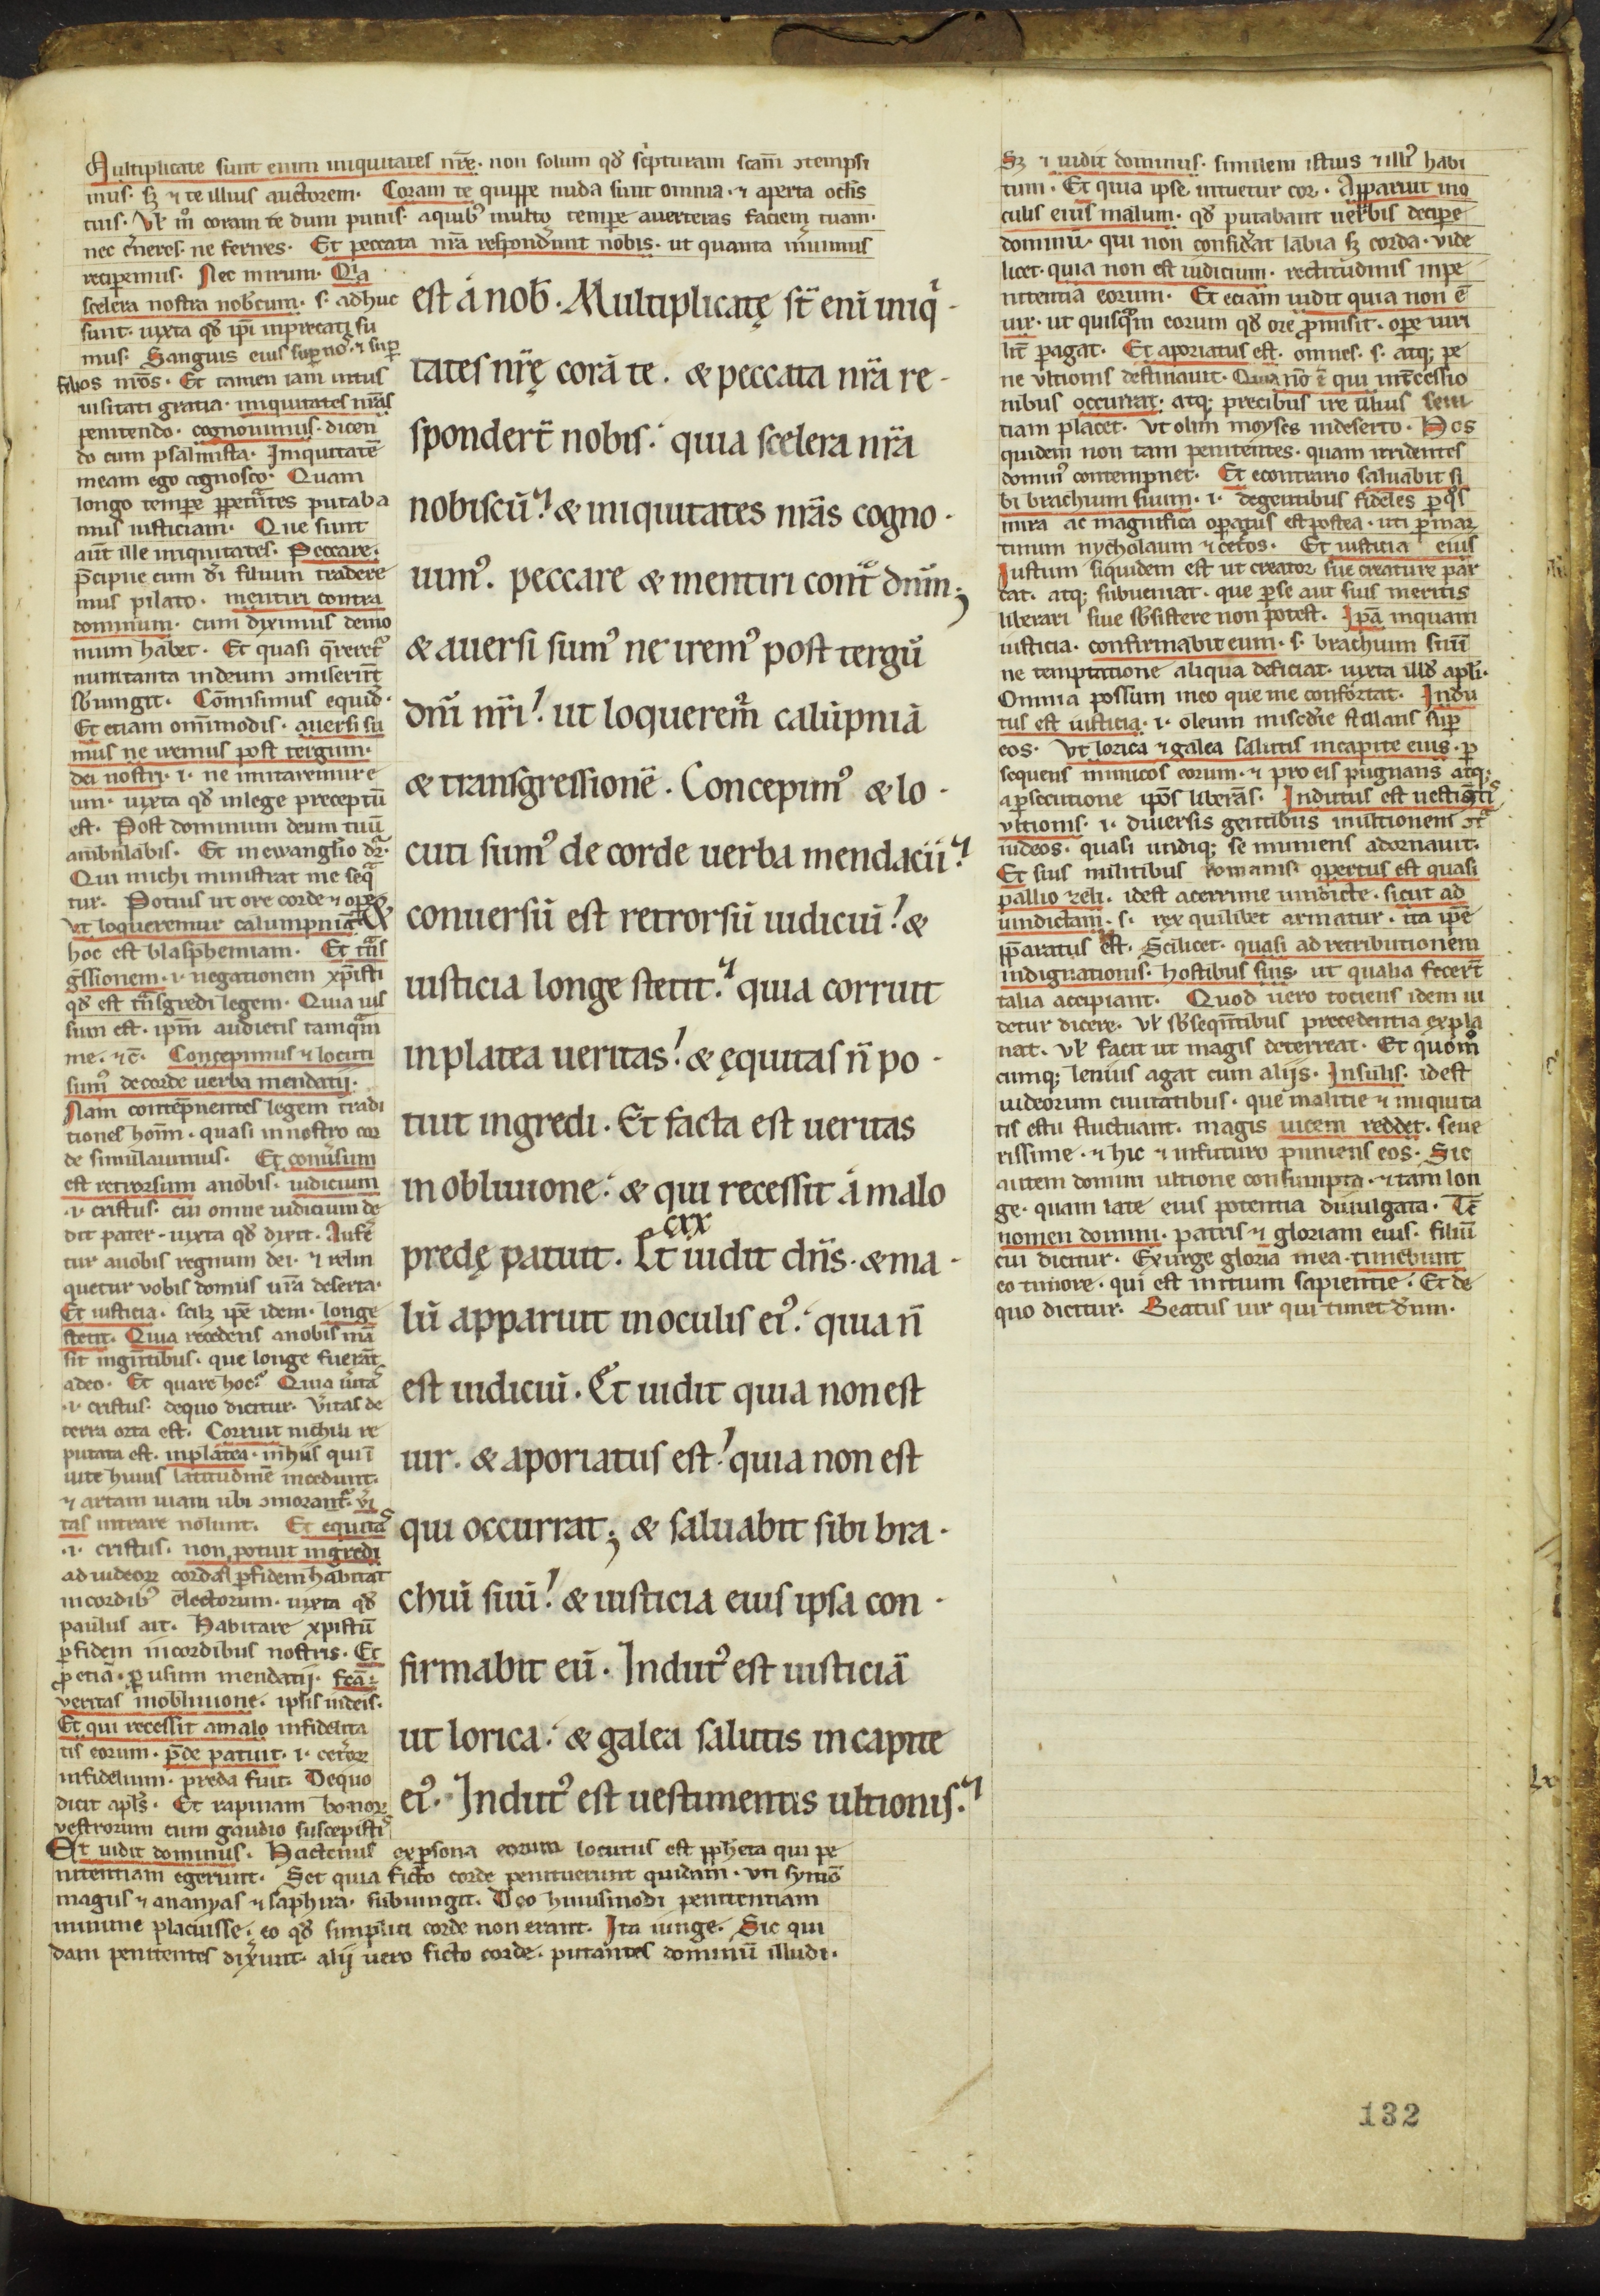 Multiplicate sunt enim iniquitates nr̄ę. non solum qđ sc̓pturam scam̄ ↄtempsi
mus. sꝫ ⁊ te illius auctorem. Coram te quippe nuda sunt omnia. ⁊ aperta oclis
tuis. Vl̓ m̊ coram te dum punis. aquibꝰ multo tempore auerteras faciem tuam.
nec c̓neres. ne ferires. Et peccata nr̄a respond̓unt nobis. ut quanta meruimus
reciperemus. Nec mirum. Qia
scelera nostra nob̄cum. s. adhuc
sunt. iuxta qđ ip̄i inprecati su
mus. Sanguis eius super noˢ. ⁊ sup̄
filios nr̄os. Et tamen iam intus
uisitati gratia. iniquitates nr̄as
penitendo. cognouimus. dicen
do cum psalmista. Iniquitatē
meam ego cognosco. Quam
longo tempore ꝑpetrātes putaba
mus iusticiam. Que sunt
aut̄ ille iniquitates. Peccare.
p̄cipue cum d̄i filium tradere
mus pilato. mentiri contra
dominum. cum diximus demo
nium habet. Et quasi q̄reret᷒
num tanta in deum ↄmiserint
sb̄iungit. Cōmisimus equid̓.
Et etiam om̄imodis. auersi su
mus ne iremus post tergum.
dei nostri. i. ne imitaremur e
um. iuxta qđ inlege preceptū
est. Post dominum deum tuū
ambulabis. Et in ewanglio dr̄.
Qui michi ministrat me seqͣ
tur. Potius ut ore corde ⁊ ope
Vt loqueremur calumpniā &
hoc est blasphemiam. Et tn̄s
gressionem. i. negationem xpīsti
qđ est tn̄sgredi legem. Quia uis
sum est. ipm̄ audietis tamqͣm
me. ⁊c̄. Concepimus ⁊ locuti
sumꝰ de corde uerba mendatij.
Nam contempnentes legem tradi
tiones hoīm. quasi in nostro cor
de simulauimus. Et conu̓sum
est retrorsum anobis. iudicium
.i. cristus. cui omne iudicium de
dit pater. iuxta qđ dixit. Aufe
tur auobis regnum dei. ⁊ relin
quetur vobis domus ur̄a deserta.
Et iusticia. scilꝫ ip̄e idem. longe
stetit. Quia recedens anobis mā
sit ingn̄tibus. que longe fuerāt
adeo. Et quare hoc? Quia u̓itaˢ
.i. cristus. dequo dicitur. V̓itas de
terra orta est. Corruit nichili re
putata est. inplatea. in hijs qui ī
uite huius latitudine incedunt.
⁊ artam uiam ubi ↄmorant᷒. v̓i
tas intrare nolunt. Et equitaˢ
.i. cristus. non potuit ingredi
ad iudeoꝝ corda. ꝑ fidem habitat
in cordibꝰ electorum. iuxta qđ
paulus ait. Habitare xpistū
ꝑ fidem in cordibus nostris. Et
ꝓ etiā. ꝑ usum mendatij. fcā.:
veritas inobliuione. ipsis iudeis.
Et qui recessit amalo infidelita
tis eorum. p̄de patuit. i. cet̓oꝝ
infidelium. preda fuit. Dequo
dicit apls̄. Et rapinam bonoꝝ
vestrorum cum gaudio suscepistiˢ
Et uidit dominus. Hactenus ex ꝑsona eorum locutus est ꝓpheta qui pe
nitentiam egerunt. Set quia ficto corde penituerunt quidam. uti symō
magus ⁊ ananyas ⁊ saphira. subiungit. Deo huiusmodi penitentiam
minime placuisse. eo qđ simplici corde non erant. Ita iunge. Sic qui
dam penitentes dix̓unt. alij uero ficto corde. putantes dominū illudi.
est á nob̄. Multiplicatę st̄ enī iniqͥ-
tates nr̄ę corā te. & peccata nr̄a re-
spondert̄ nobis: quia scelera nr̄a
nobiscū. & iniquitates nr̄as cogno-
uimꝰ. peccare & mentiri contͣ dn̄m;
& auersi sumꝰ ne iremꝰ post tergū
dn̄i nr̄i. ut loquerem᷒ calūpniā
& transgressionē. Concepimꝰ & lo-
cuti sumꝰ de corde uerba mendacii.
conuersū est retrorsū iudiciū. &
iusticia longe stetit. quia corruit
in platea ueritas. & ęquitas n̄ po-
tuit ingredi. Et facta est ueritas
in obliuione: & qui recessit á malo
cxx
predę patuit. Et uidit dn̄s. & ma-
lū apparuit in oculis eiꝰ: quia n̄
est iudiciū. Et uidit quia non est
uir. & aporiatus est. quia non est
qui occurrat; & saluabit sibi bra-
chiū suū. & iusticia eius ipsa con-
firmabit eū. Indutꝰ est iusticiā
ut lorica: & galea salutis in capite
eiꝰ. Indutꝰ est uestimentis ultionis.
Sꝫ ⁊ uidit dominus. similem istius ⁊ illiꝰ habi
tum. Et quia ipse intuetur cor. Apparuit ino
culis eius malum. qđ putabant uerbis decipe
dominū. qui non consid̓at labia sꝫ corda. vide
licet. quia non est iudicium. rectitudinis inpe
nitentiā eorum. Et etiam uidit quia non ē
uir. ut quisqͣm eorum qđ ore ꝓmisit. ope uiri
lit̓ peragat. Et aporiatus est. omnes. s. atqꝫ pe
ne vltionis destinauit. Quia nō ē qui int̓cessio
nibus occurrat. atqꝫ precibus ire illius seui
tiam placet. Vt olim moyses indeserto. Hos
quidem non tam penitentes. quam irridentes
dominꝰ contempnet. Et econtrario saluabit si
bi brachium suum. i. degentibus fideles ꝑ qͦs
mira ac magnifica operatus est postea. uti ꝑ mar
tinum nycholaum ⁊ cet̓os. Et iusticia eius
Iustum siquidem est ut creator sue creature par
cat. atqꝫ subueniat. que ꝑ se aut suis meritis
liberari siue sb̄sistere non potest. Ip̄a inquam
iusticia. confirmabit eum. s. brachium suū
ne temptatione aliqua deficiat. iuxta illđ apl̄i.
Omnia possum ineo que me confortat. Indu
tus est iusticia. i. oleum misc̓die stillans sup̄
eos. Vt lorica ⁊ galea salutis incapite eius. ꝑ
sequens inimicos eorum. ⁊ pro eis pugnans atqꝫ
aꝑsecutione ip̄os liberās. Indutus est uestimētiˢ
vltionis. i. diuersis gentibus inultionem ↄtͣ
iudeos. quasi undiqꝫ se muniens adornauit.
Et suis militibus romanis. opertus est quasi
pallio zeli. idest acerrime uindicte. sicut ad
uindictam. s. rex quilibet armatur. ita ip̄e
p̄paratus est. Scilicet. quasi ad retributionem
indignationis. hostibus suis. ut qualia fecert̄
talia accipiant. Quod uero totiens idem ui
detur dicere. Vl̓ sb̄seqn̄tibus precedentia expla
nat. Vl̓ facit ut magis deterreat. Et quom̊
cumqꝫ lenius agat cum alijs. Insulis. idest
iudeorum ciuitatibus. que malitie ⁊ iniquita
tis estu fluctuant. magis uicem reddet. seue
rissime. ⁊ hic ⁊ infuturo puniens eos. Sic
autem domini ultione consumpta. ⁊ tam lon
ge. quam late eius potentia diuulgata. Tī
nomen domini. patris ⁊ gloriam eius. filiū
cui dicitur. Exurge gloria mea. timebunt
eo timore. qui est initium sapientie. Et de
quo dicitur. Beatus uir qui timet dn̄m.
132